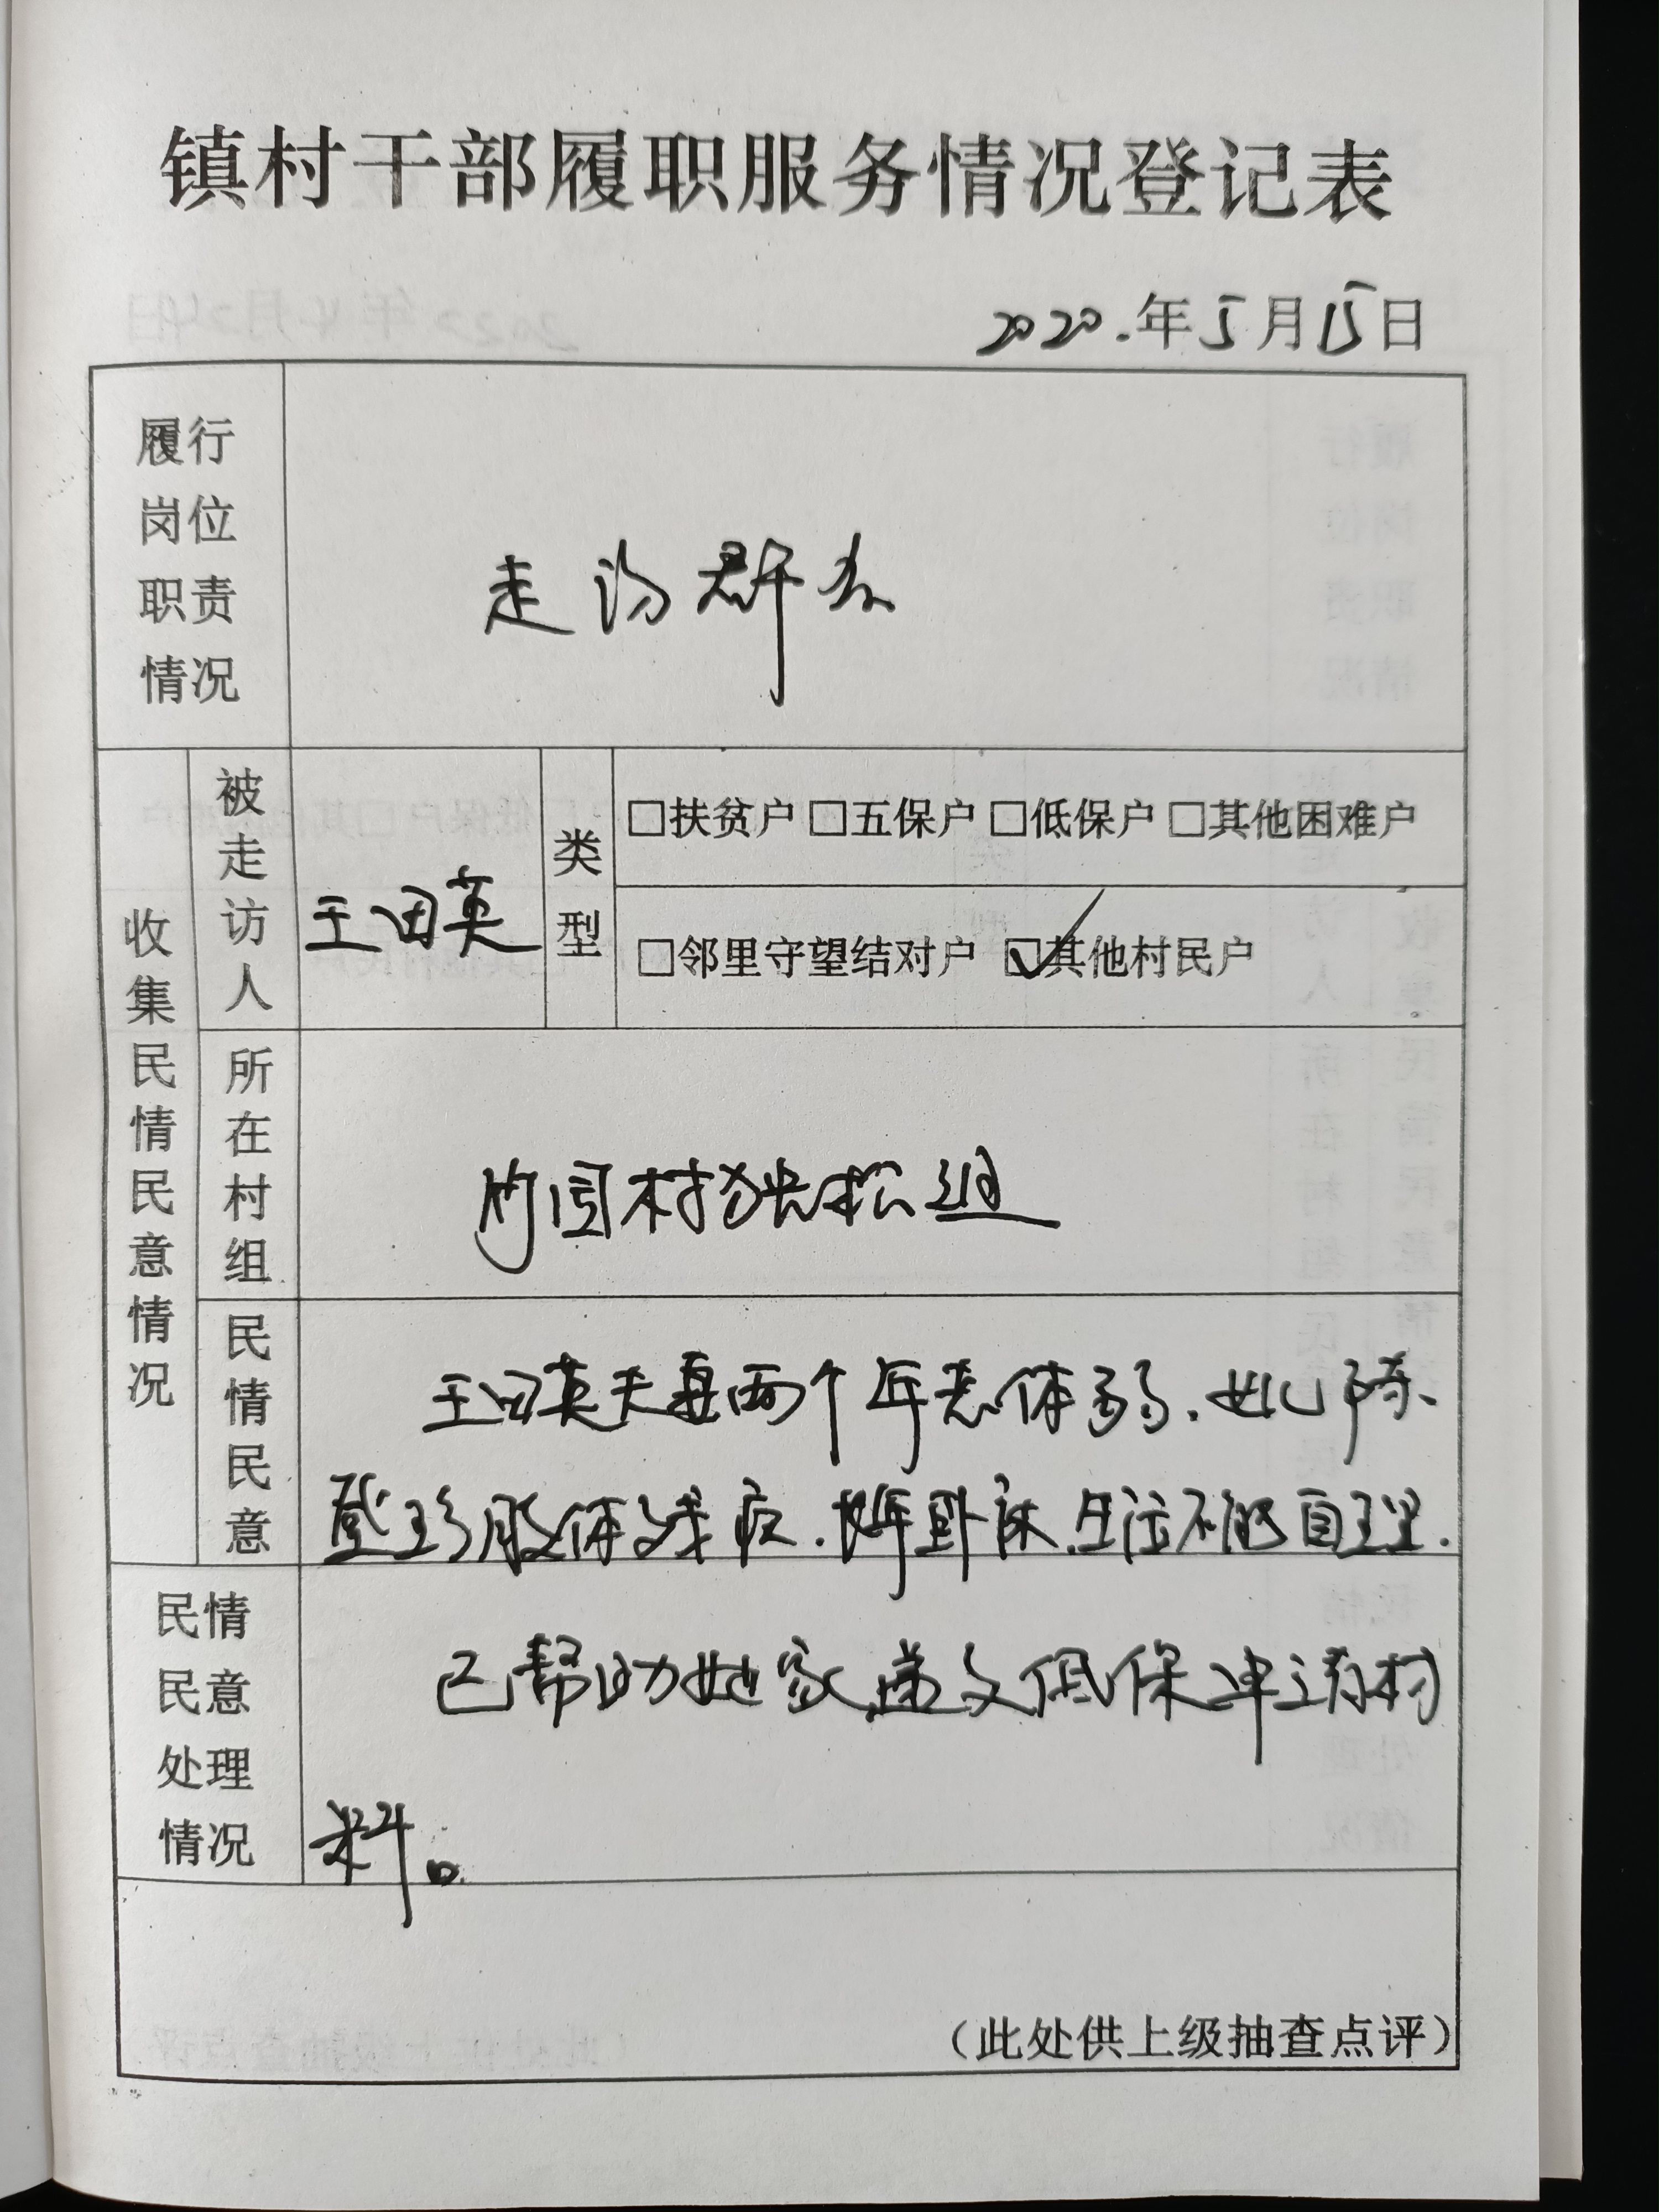 镇村干部履职服务情况登记表
2020.年5月15日
履行
岗位
职责
情况
走访群众
收集民情民意情况
被走访人
王田英
类型
□扶贫户 □五保户 □低保户 □其他困难户
□邻里守望结对户 ☑其他村民户
所在村组
竹园村独松组
民情民意
王田英夫妻两个年老体弱.
肢体残疾.长年卧床.生活不能自理.
民情
民意
处理
情况
已帮助她家递交低保申请材
料。
（此处供上级抽查点评）